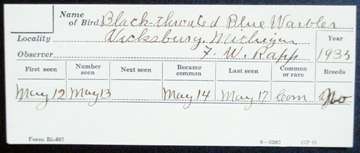 Name of Bird Black-throated Blue Warbler
Locality Vicksburg, Michigan Year
Observer F. W. Rapp 1935
First seen Number seen Next seen Became common Last seen Common or rare Breeds
May 12 May 13 May 14 May 17 Com No
Form Bi-887